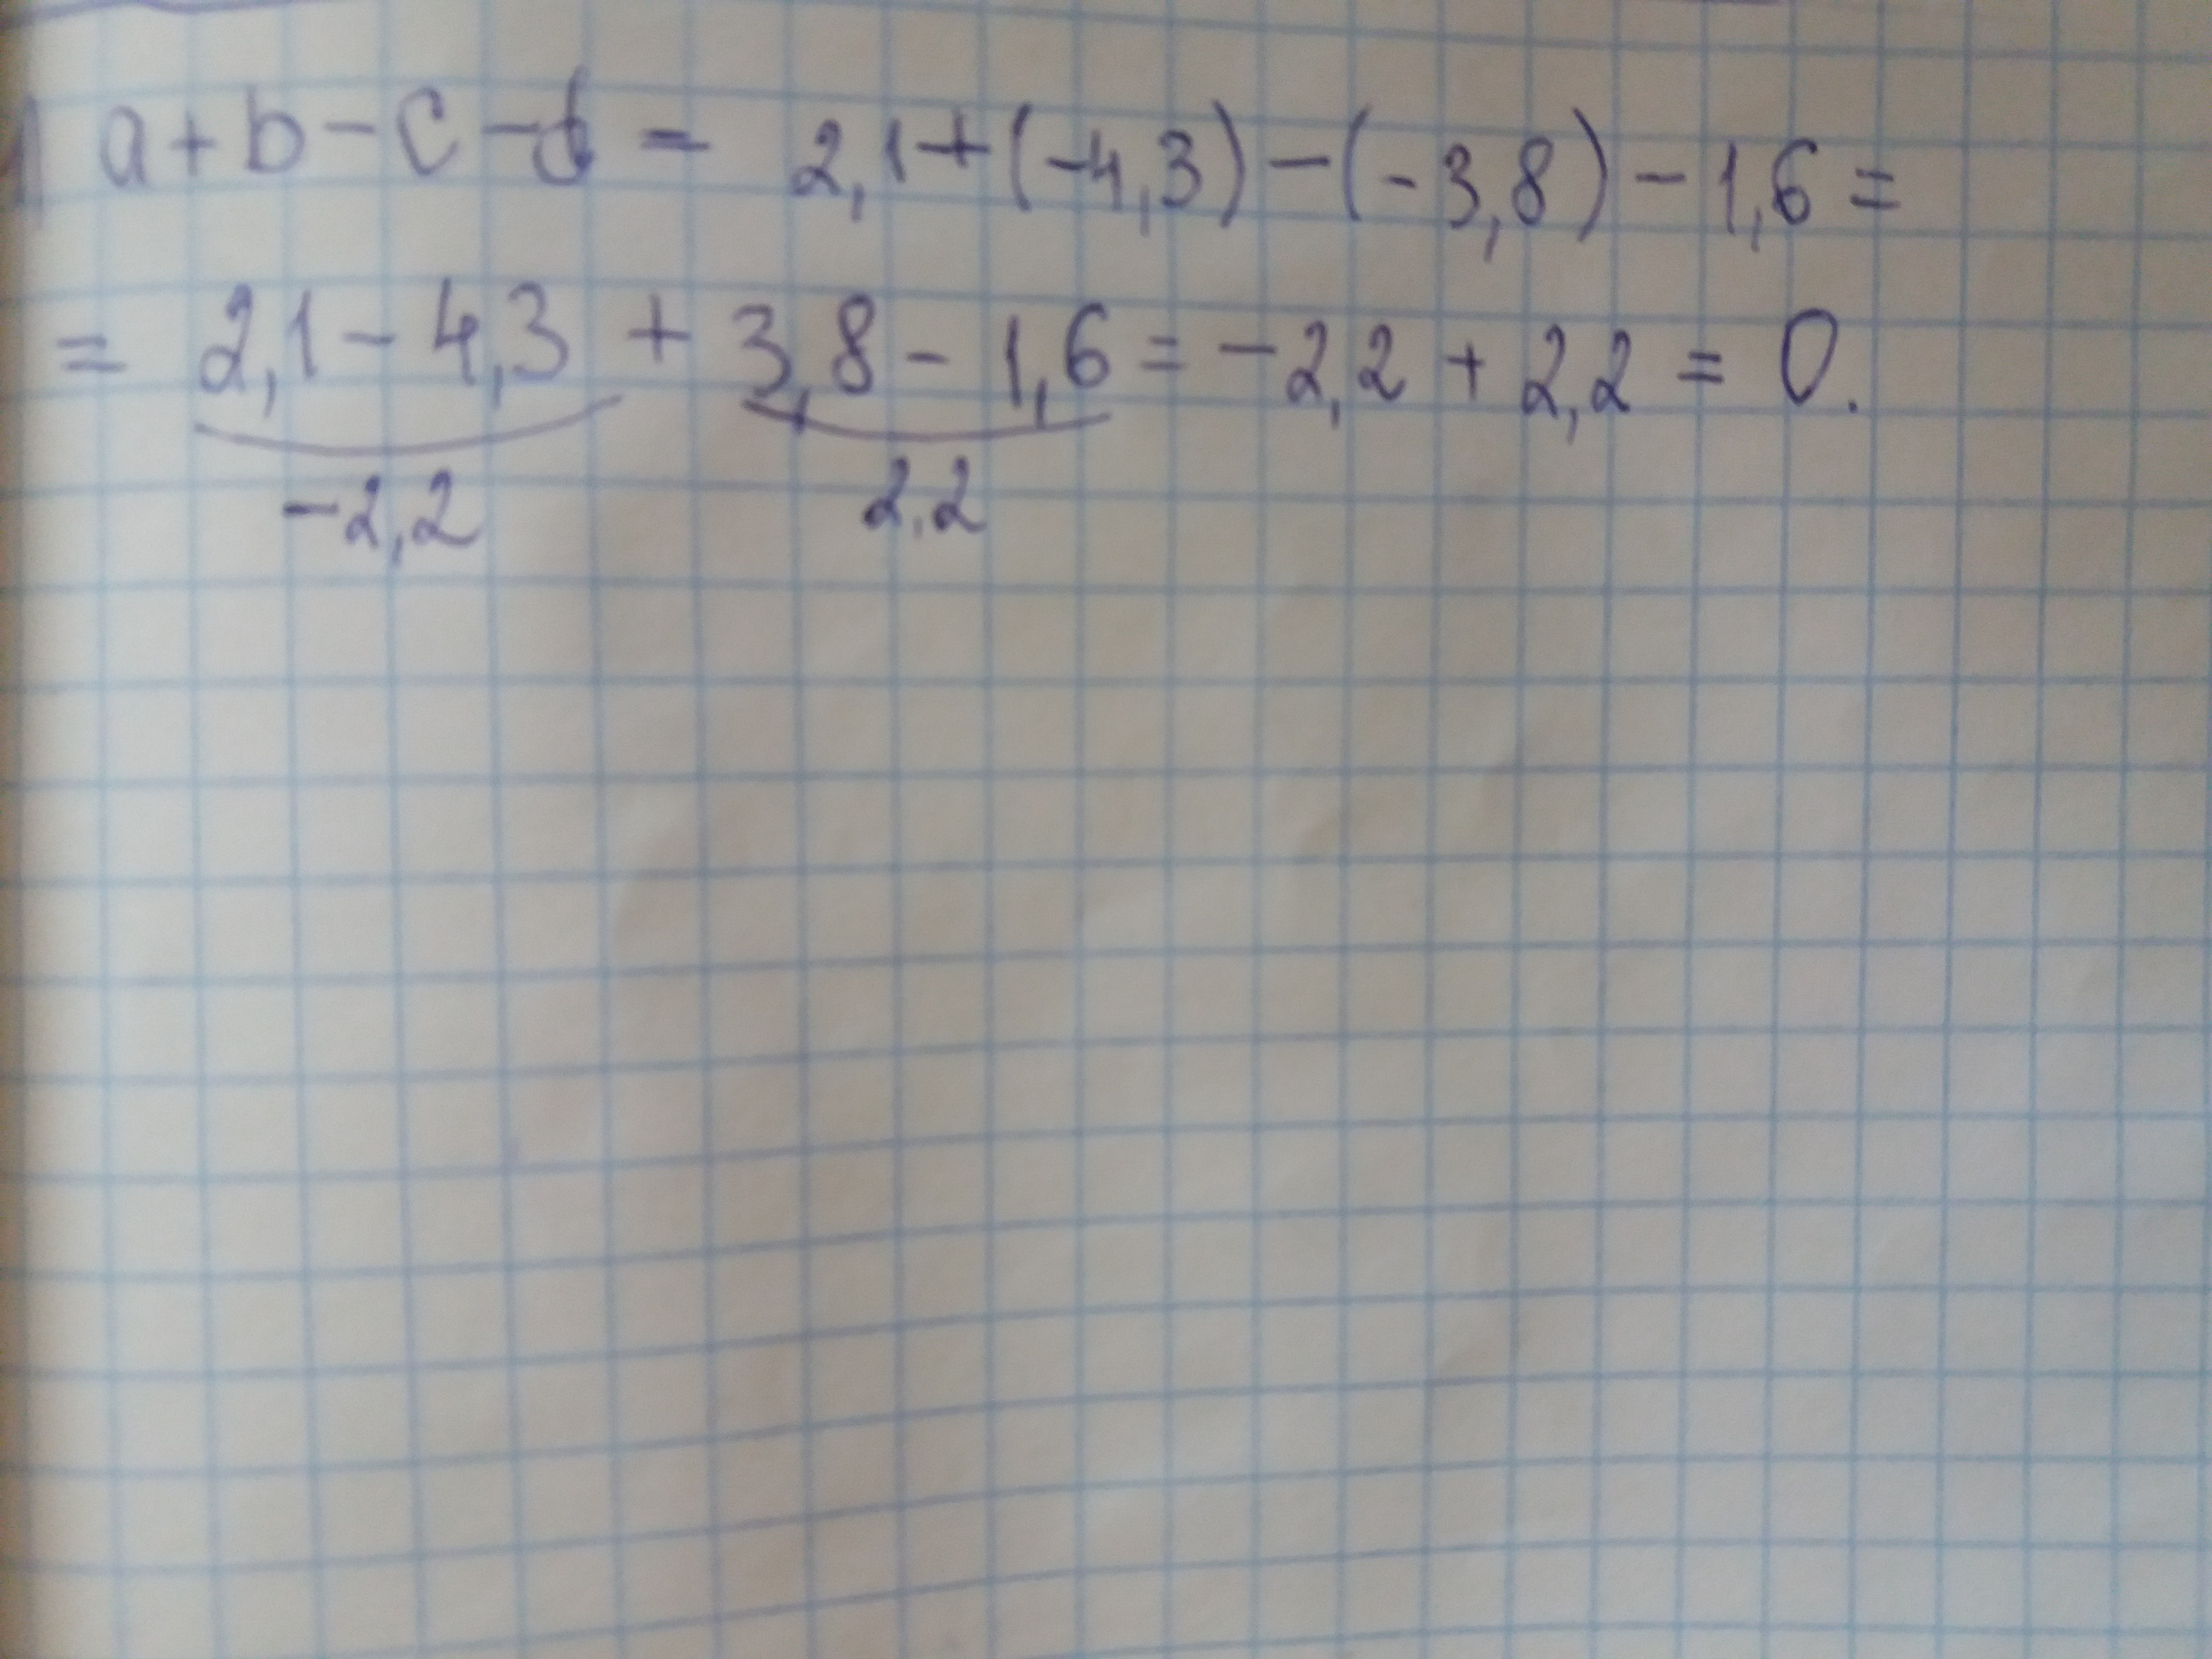 a + b - c - d = 2,1 + (-4,3) - (-3,8) - 1,6 =
= 2,1 - 4,3 + 3,8 - 1,6 = -2,2 + 2,2 = 0.
-2,2 2,2